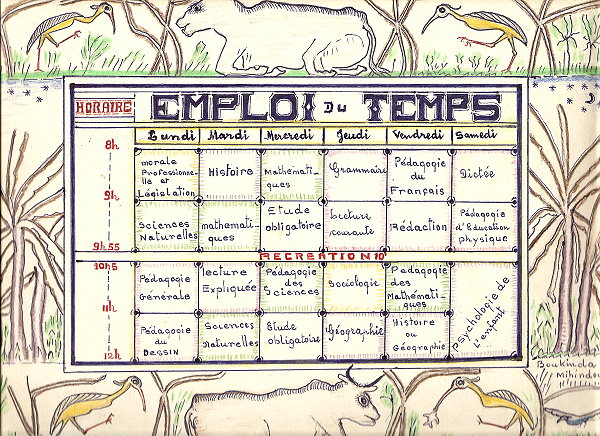 HORAIRE EMPLOI DU TEMPS
Lundi Mardi Mercredi Jeudi Vendredi Samedi
8h
morale
Professionne-
lle et
Législation
Histoire
Mathémati-
ques
Grammaire
Pédagogie
du
Français
Dictée
9h
Sciences
Naturelles
mathemati-
ques
Etude
obligatoire
Lecture
courante
Rédaction
Pédagogie
d'Education
physique
9h55
RECREATION 10'
10h5
Pédagogie
Générale
lecture
Expliquée
Pédagogie
des
Sciences
Sociologie
Pédagogie
des
Mathémati-
ques
Psychologie de
l'enfant
11h
Pédagogie
du
DESSIN
Sciences
Naturelles
Etude
obligatoire
Géographie
Histoire
ou
Géographie
12h
Boukinda
Mihindou